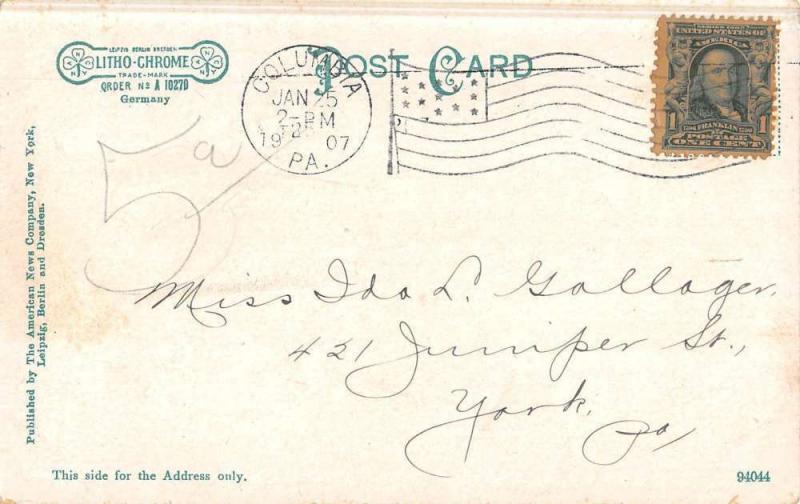 LEIPZIG BERLIN DRESDEN
LITHO-CHROME
TRADE-MARK
ORDER Nº A 10270
Germany
POST CARD
COLUMBIA
JAN 25
2-PM
1907
PA.
SERIES 1902
UNITED STATES OF
AMERICA
FRANKLIN
1 POSTAGE 1
ONE CENT
5a
Miss Ida L. Gallager.
421 Juniper St.,
York,
Pa,
Published by The American News Company, New York,
Leipzig, Berlin and Dresden.
This side for the Address only.
94044